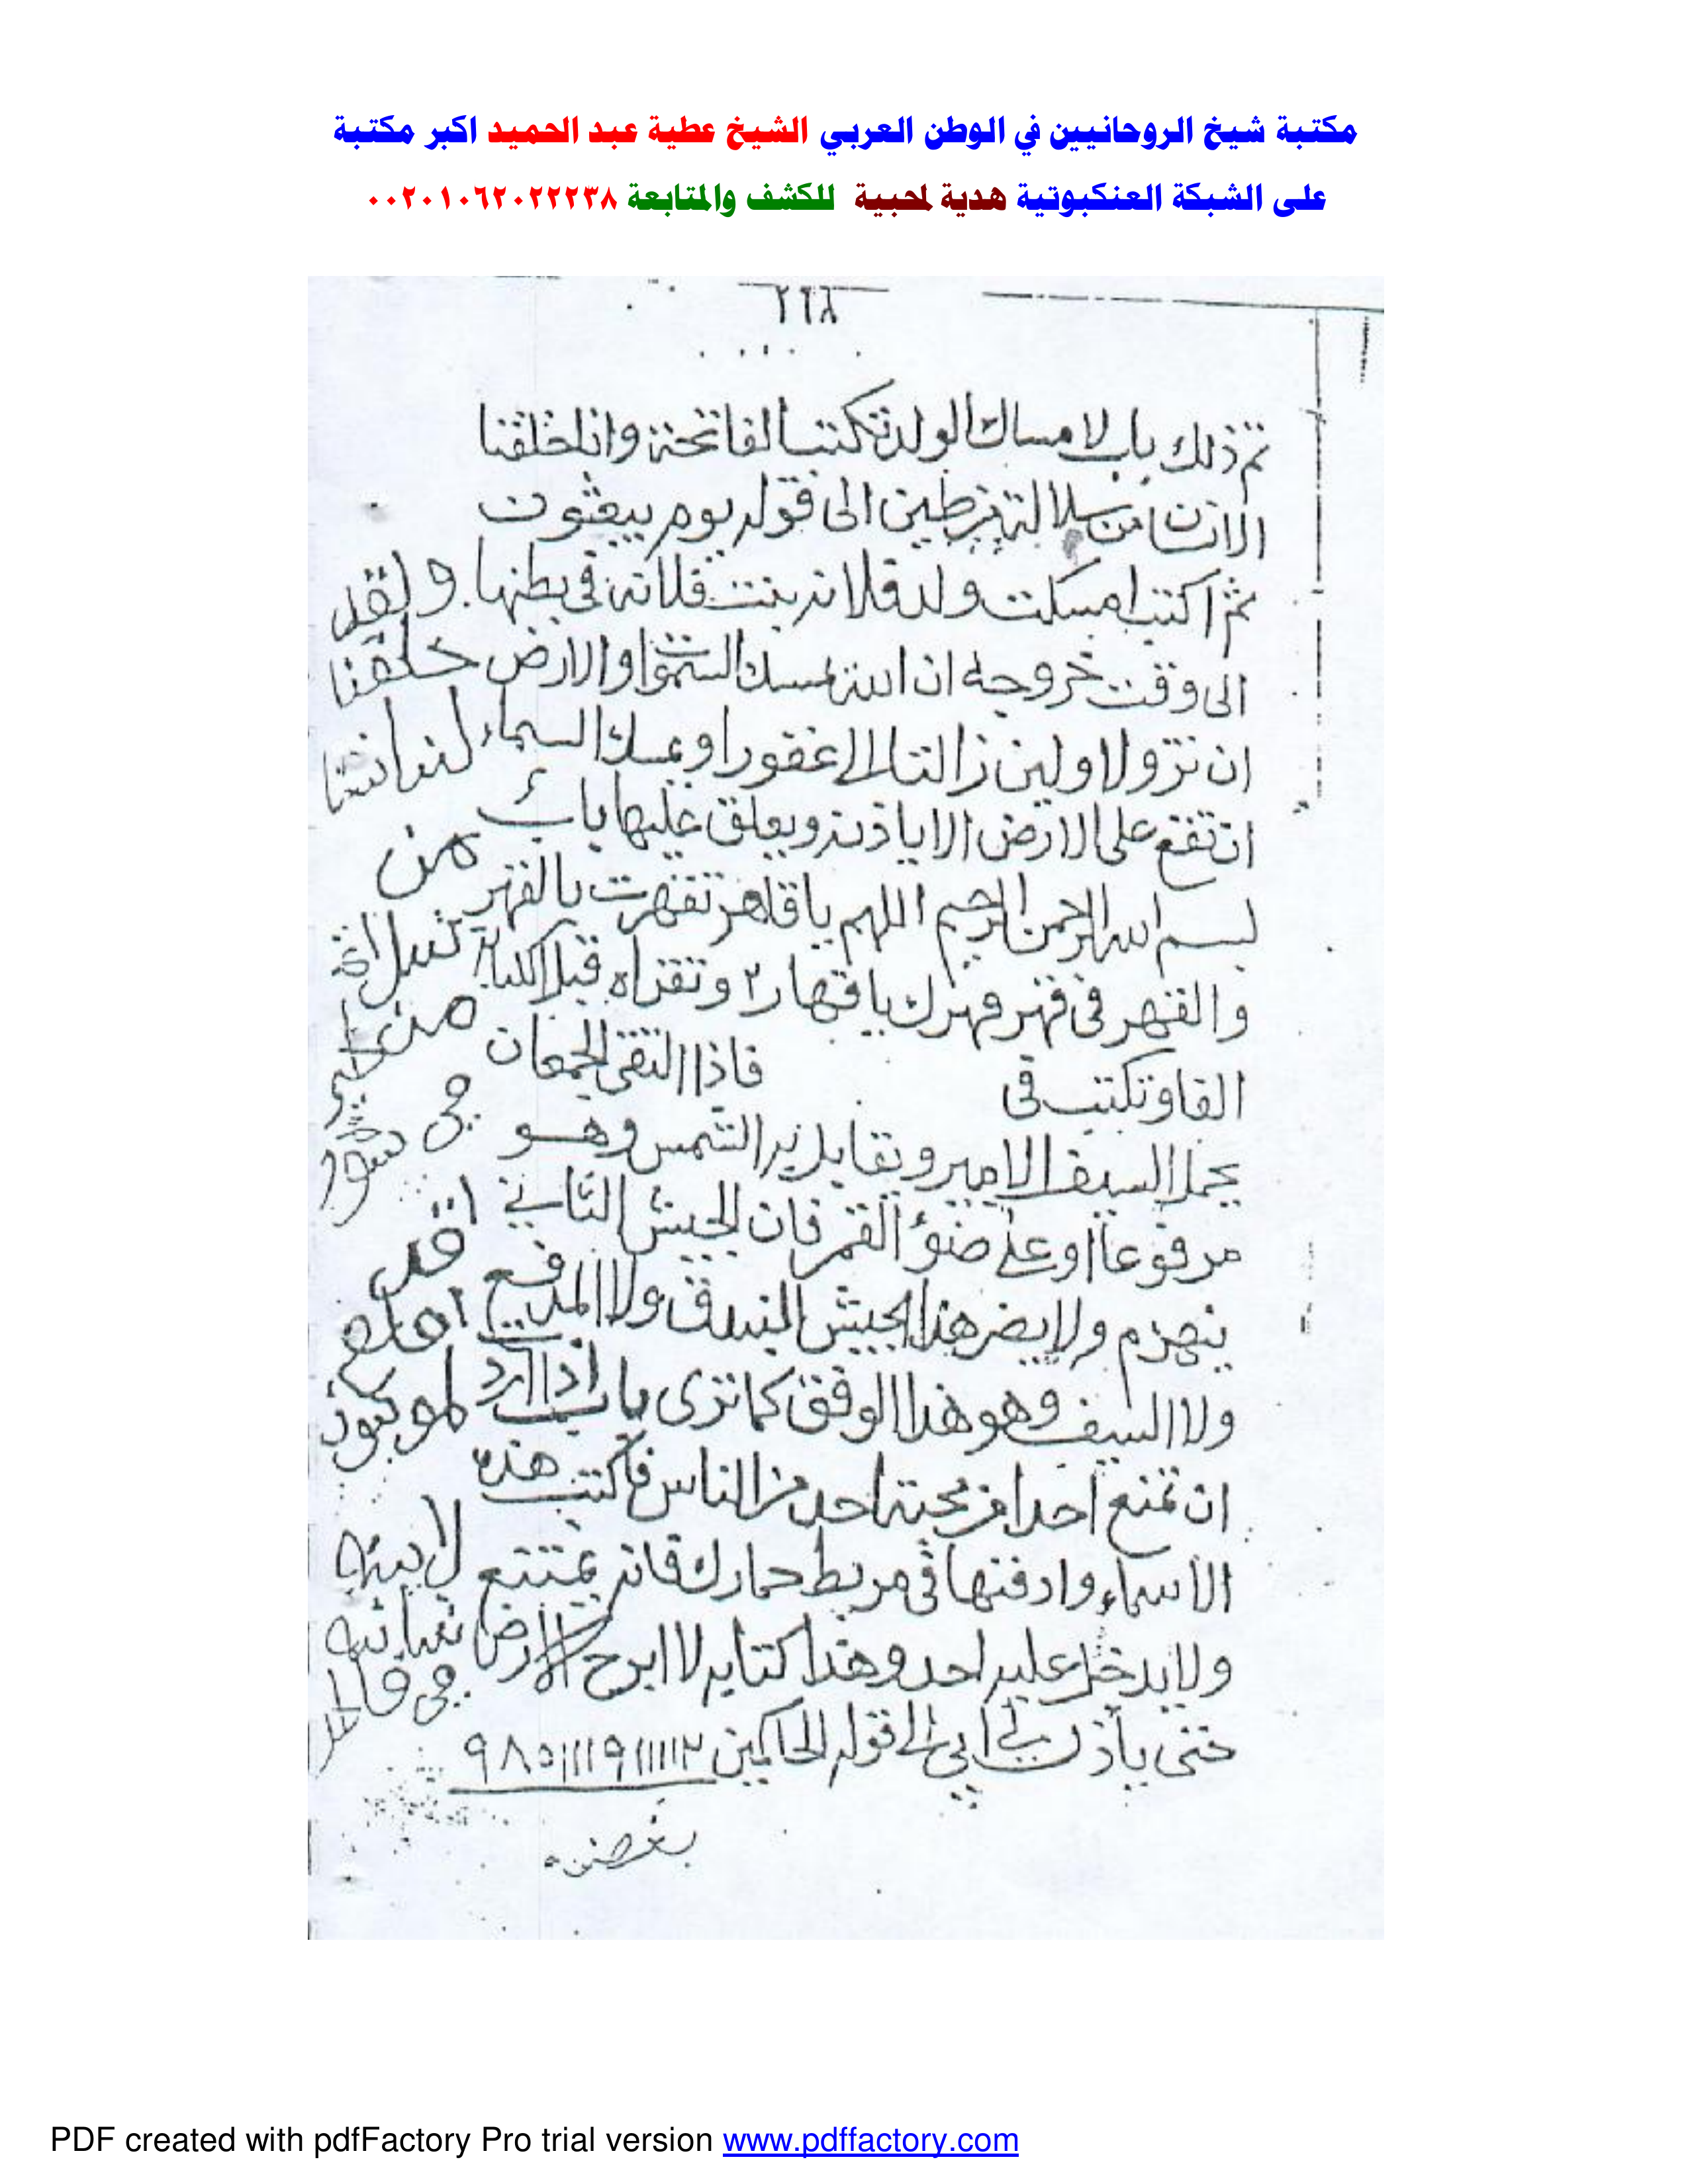 مكتبة شيخ الروحانيين في الوطن العربي الشيخ عطية عبد الحميد اكبر مكتبة
على الشبكة العنكبوتية هدية لمحبية للكشف والمتابعة ٠٠٢٠١٠٦٢٠٢٢٢٣٨
٢٦٨
تم ذلك باب لامساك الولد تكتب الفاتحة وانا خلقنا
الانسان من سلالة من طين الى قوله يوم يبعثون
ثم اكتب امسكت ولد فلانة بنت فلانة في بطنها
الى وقت خروجه ان الله يمسك السموات والارض
ان تزولا ولين زالتا الى غفورا ويمسك السماء
ان تقع على الارض الا باذنه ويعلق عليها باب
بسم الله الرحمن الرحيم اللهم يا قاهر تقهرت بالقهر
والقهر في قهر قهرك يا قهار ٢ وتقراه قبل الكتابة
الفا وتكتب في فاذا التقى الجمعان
يحمل السيف الامير ويقابل به الشمس وهو
مرفوعا او على ضوء القمر فان الجيش الثاني
ينهزم ولا يضر هذا الجيش البندق ولا المدفع
ولا السيف وهو هذا الوفق كما ترى باب اذا ارد
ان تمنع احدا من محبة احد من الناس فاكتب هذه
الاسماء وادفنها في مربط حمارك فانه يمتنع
ولا يدخل عليه احد وهذا كتابه لا ابرح الارض
حتى يأذن لي ابي الى قوله الحاكمين ٩٨٥١١١٩١١١١٢
ولقد
خلقنا
من
من
في
قد
لا بيته